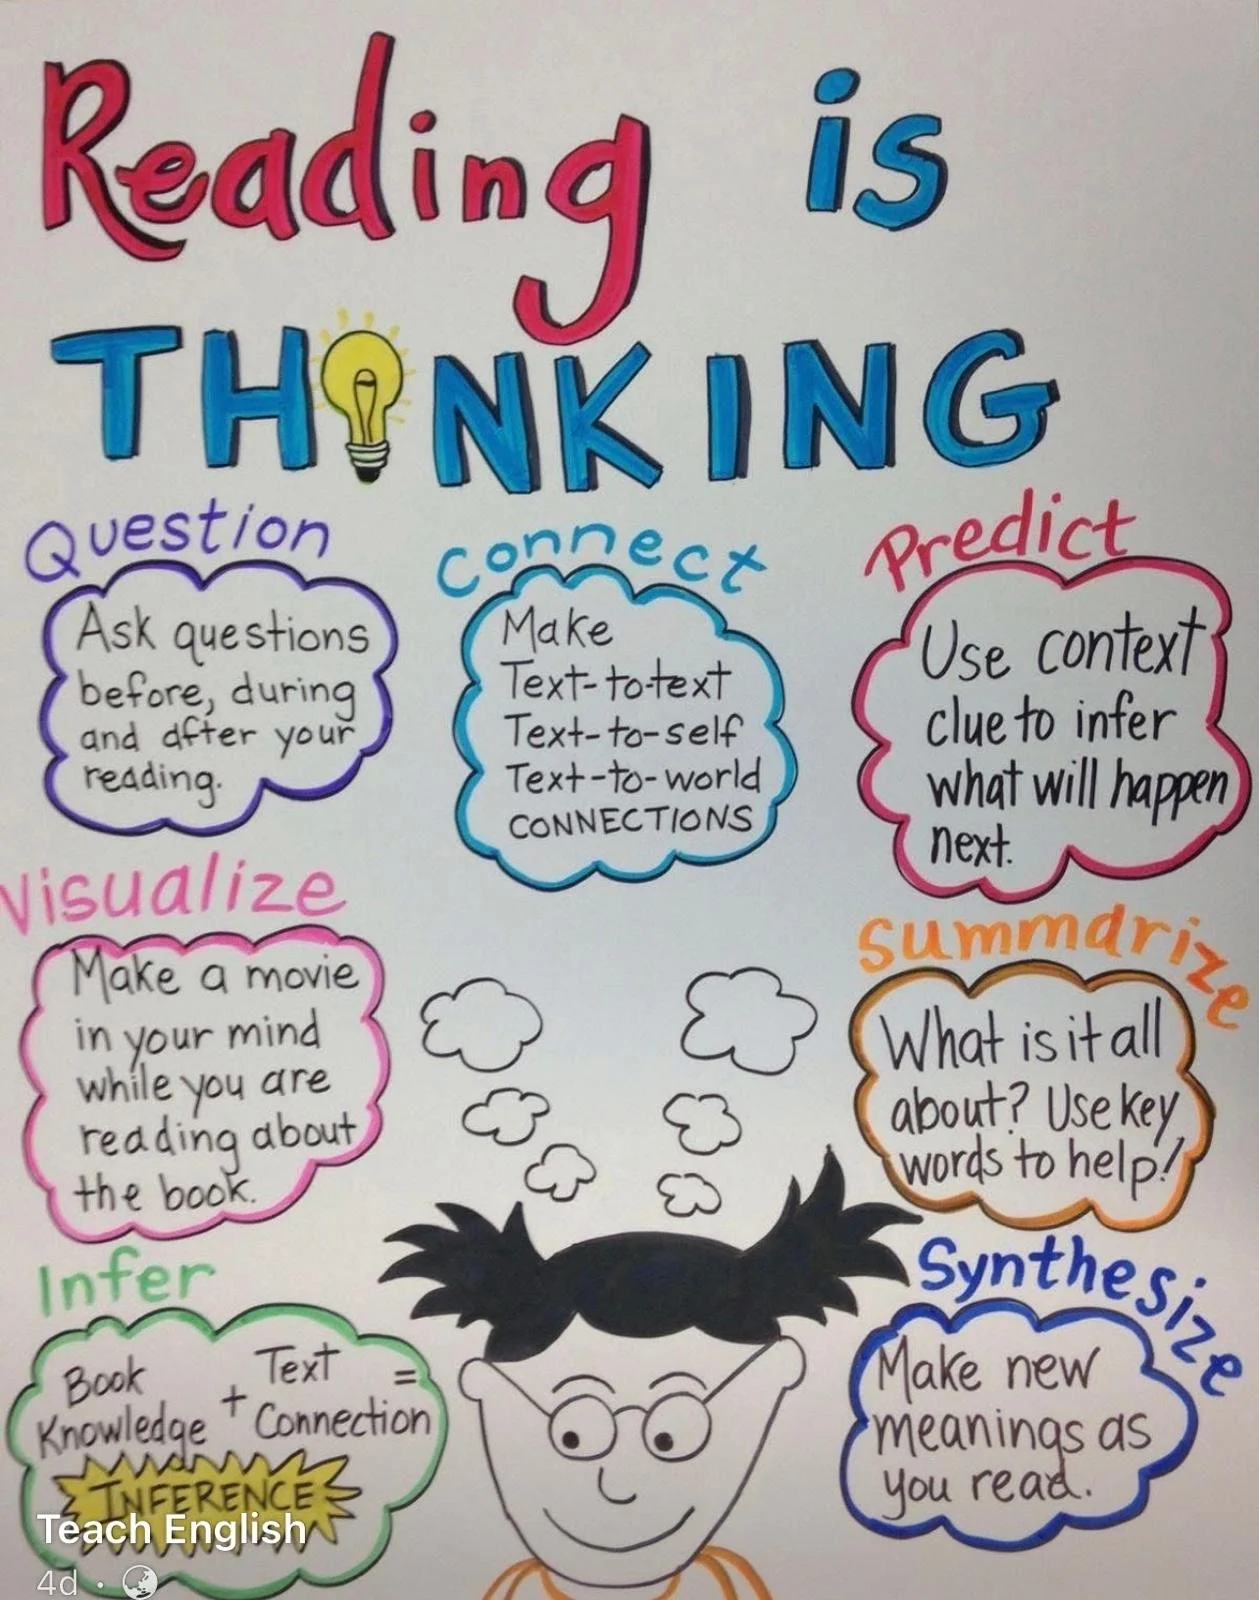 Reading is
THINKING
Question
Ask questions
before, during
and after your
reading.
Connect
Make
Text-to-text
Text-to-self
Text-to-world
CONNECTIONS
Predict
Use context
clue to infer
what will happen
next.
Visualize
Make a movie
in your mind
while you are
reading about
the book.
Summarize
What is it all
about? Use key
words to help!
Infer
Book Knowledge + Text Connection =
INFERENCE
Synthesize
Make new
meanings as
you read.
Teach English
4d